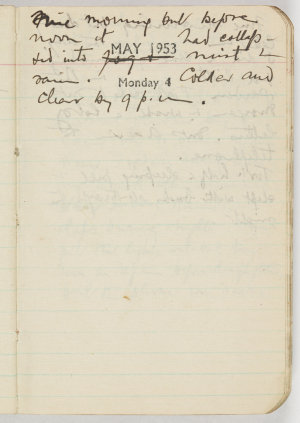 Fine morning but before
noon it had collap-
MAY 1953
sed into fog & mist &
rain. Colder and
Monday 4
clear by 9 p.m.